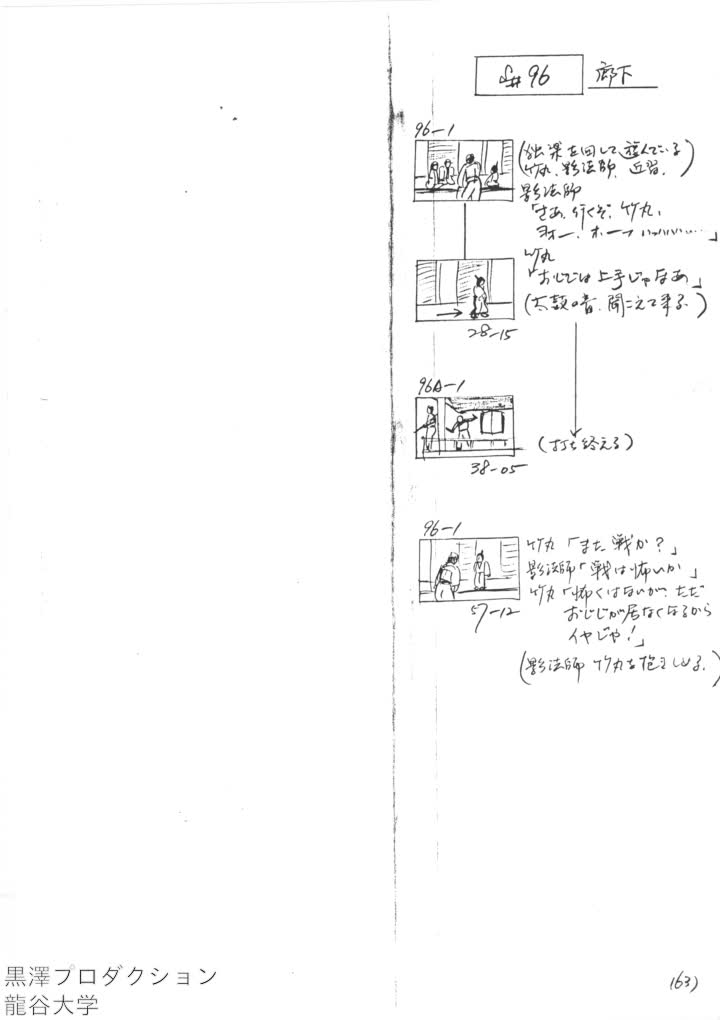 S#96 廊下
96-1
(独楽を回して遊んでいる)
(竹丸、影法師、近習、)
影法師
「さあ、行くぞ、竹丸、
ヨオー、ホーーいいいいい……」
竹丸
「おじじは上手じゃなあ」
(太鼓の音、聞こえて来る、)
28-15
96A-1
(打ち終える)
38-05
96-1
竹丸「また戦か?」
影法師「戦は怖いか」
竹丸「怖くはないが、ただ
おじじが居なくなるから
イヤじゃ!」
57-12
(影法師 竹丸を抱きしめる、)
黒澤プロダクション
龍谷大学
(63)